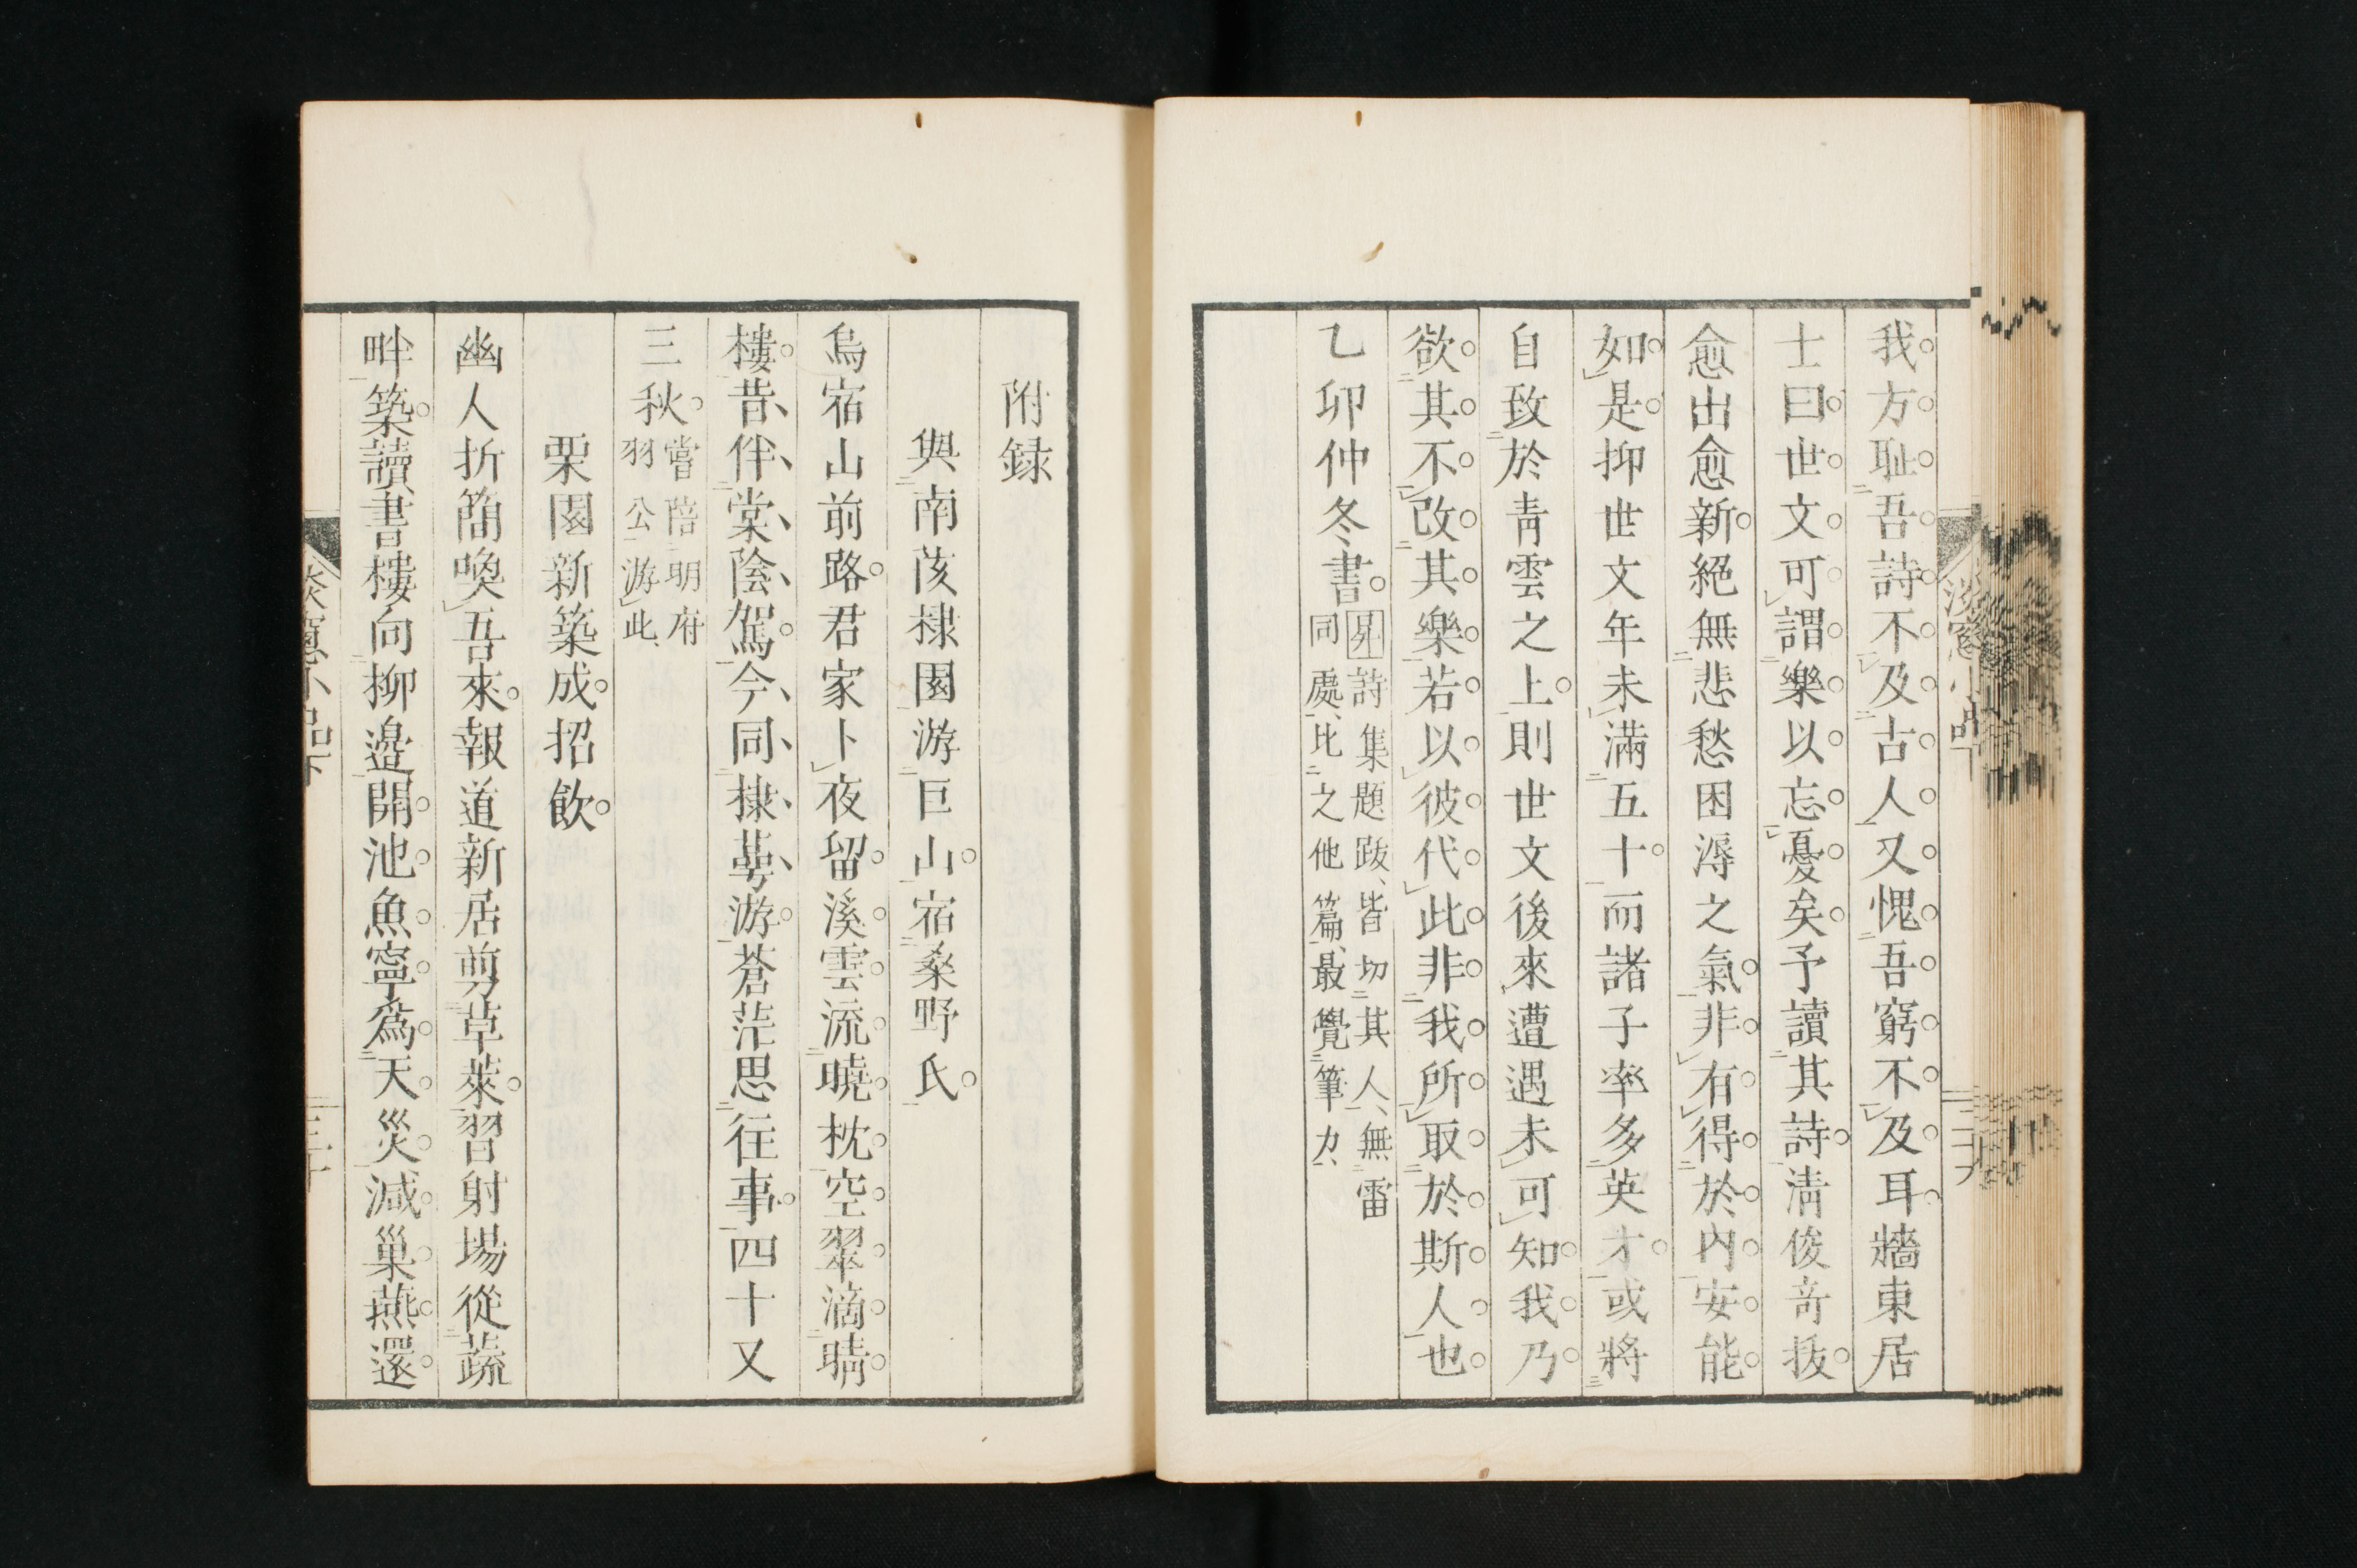 我方耻吾詩不及古人又愧吾窮不及耳牆東居
士曰世文可謂樂以忘憂矣予讀其詩淸俊奇拔
愈出愈新絕無悲愁困溽之氣非有得於內安能
如是抑世文年未滿五十而諸子率多英才或將
自致於靑雲之上則世文後來遭遇未可知我乃
欲其不改其樂若以彼代此非我所取於斯人也
乙卯仲冬書
昇詩集題跋皆切其人無雷
同處比之他篇最覺筆力
附録
與南陔棣園游巨山宿桑野氏
烏宿山前路君家卜夜留溪雲流曉枕空翠滴晴
樓昔伴棠陰駕今同棣萼游蒼茫思往事四十又
三秋
嘗陪明府
羽公游此
栗園新築成招飲
幽人折簡喚吾來報道新居剪草萊習射場從蔬
畔築讀書樓向柳邉開池魚寧爲天災減巢燕還